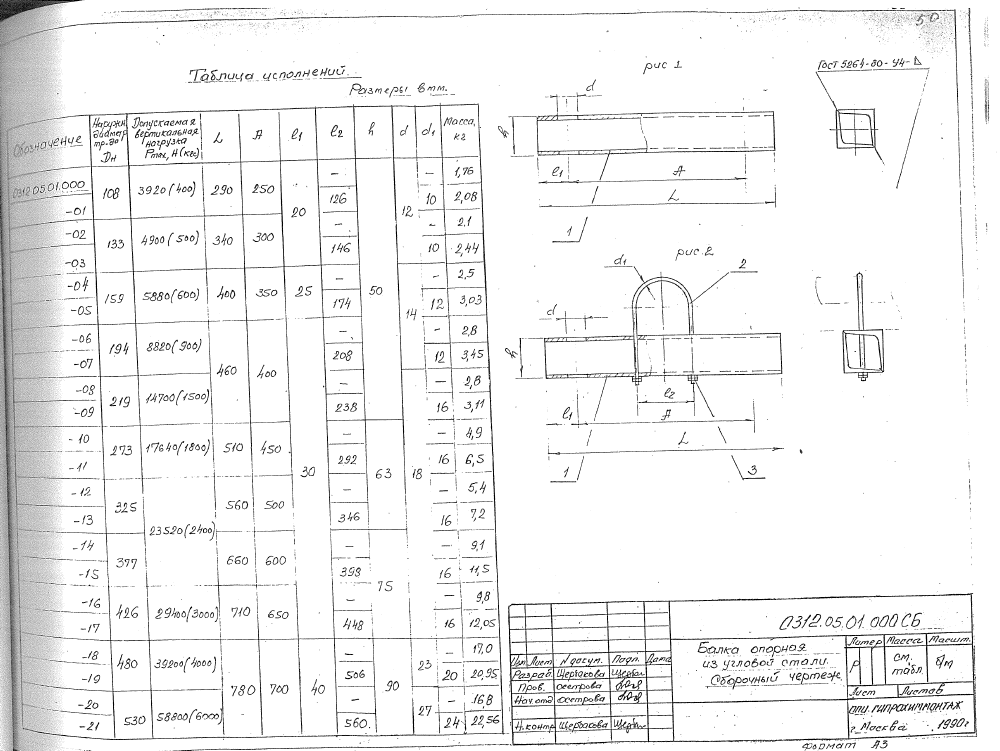 50
Таблица исполнений.
Размеры в мм.
Обозначение Наружн. диаметр тр-да Dн Допускаемая вертикальная нагрузка Pmax, Н(кгс) L A l1 l2 h d d1 Масса, кг
0312.05.01.000 108 3920(400) 290 250 20 – 50 12 – 1,76
-01 126 10 2,08
-02 133 4900(500) 340 300 – – 2.1
-03 146 10 2,44
-04 159 5880(600) 400 350 25 – 14 – 2,5
-05 174 12 3,03
-06 194 8820(900) 460 400 30 – – 2,8
-07 208 12 3,45
-08 219 14700(1500) – 18 – 2,8
-09 238 16 3,11
-10 273 17640(1800) 510 450 – 63 – 4,9
-11 292 16 6,5
-12 325 23520(2400) 560 500 – – 5,4
-13 346 16 7,2
-14 377 660 600 – 75 – 9,1
-15 398 16 11,5
-16 426 29400(3000) 710 650 – – 9,8
-17 448 16 12,05
-18 480 39200(4000) 780 700 40 – 90 23 – 17,0
-19 506 20 20,95
-20 530 58800(6000) – 27 – 16,8
-21 560. 24 22,56
рис 1
d
h
l1
A
L
1
ГОСТ 5264-80-У4-
рис. 2
d1
2
d
h
l2
l1
A
L
1
3
0312.05.01.000 СБ
Балка опорная
из угловой стали.
Сборочный чертеж.
Литер Масса Масштаб.
Р см. табл. б/м
Лист Листов
Изм. Лист N докум. Подп. Дата
Разраб. Щербакова
Пров. Осетрова
Нач.отд Осетрова
Н.контр Щербакова
ГИПРОХИММОНТАЖ
г. Москва 1990г
Формат А3